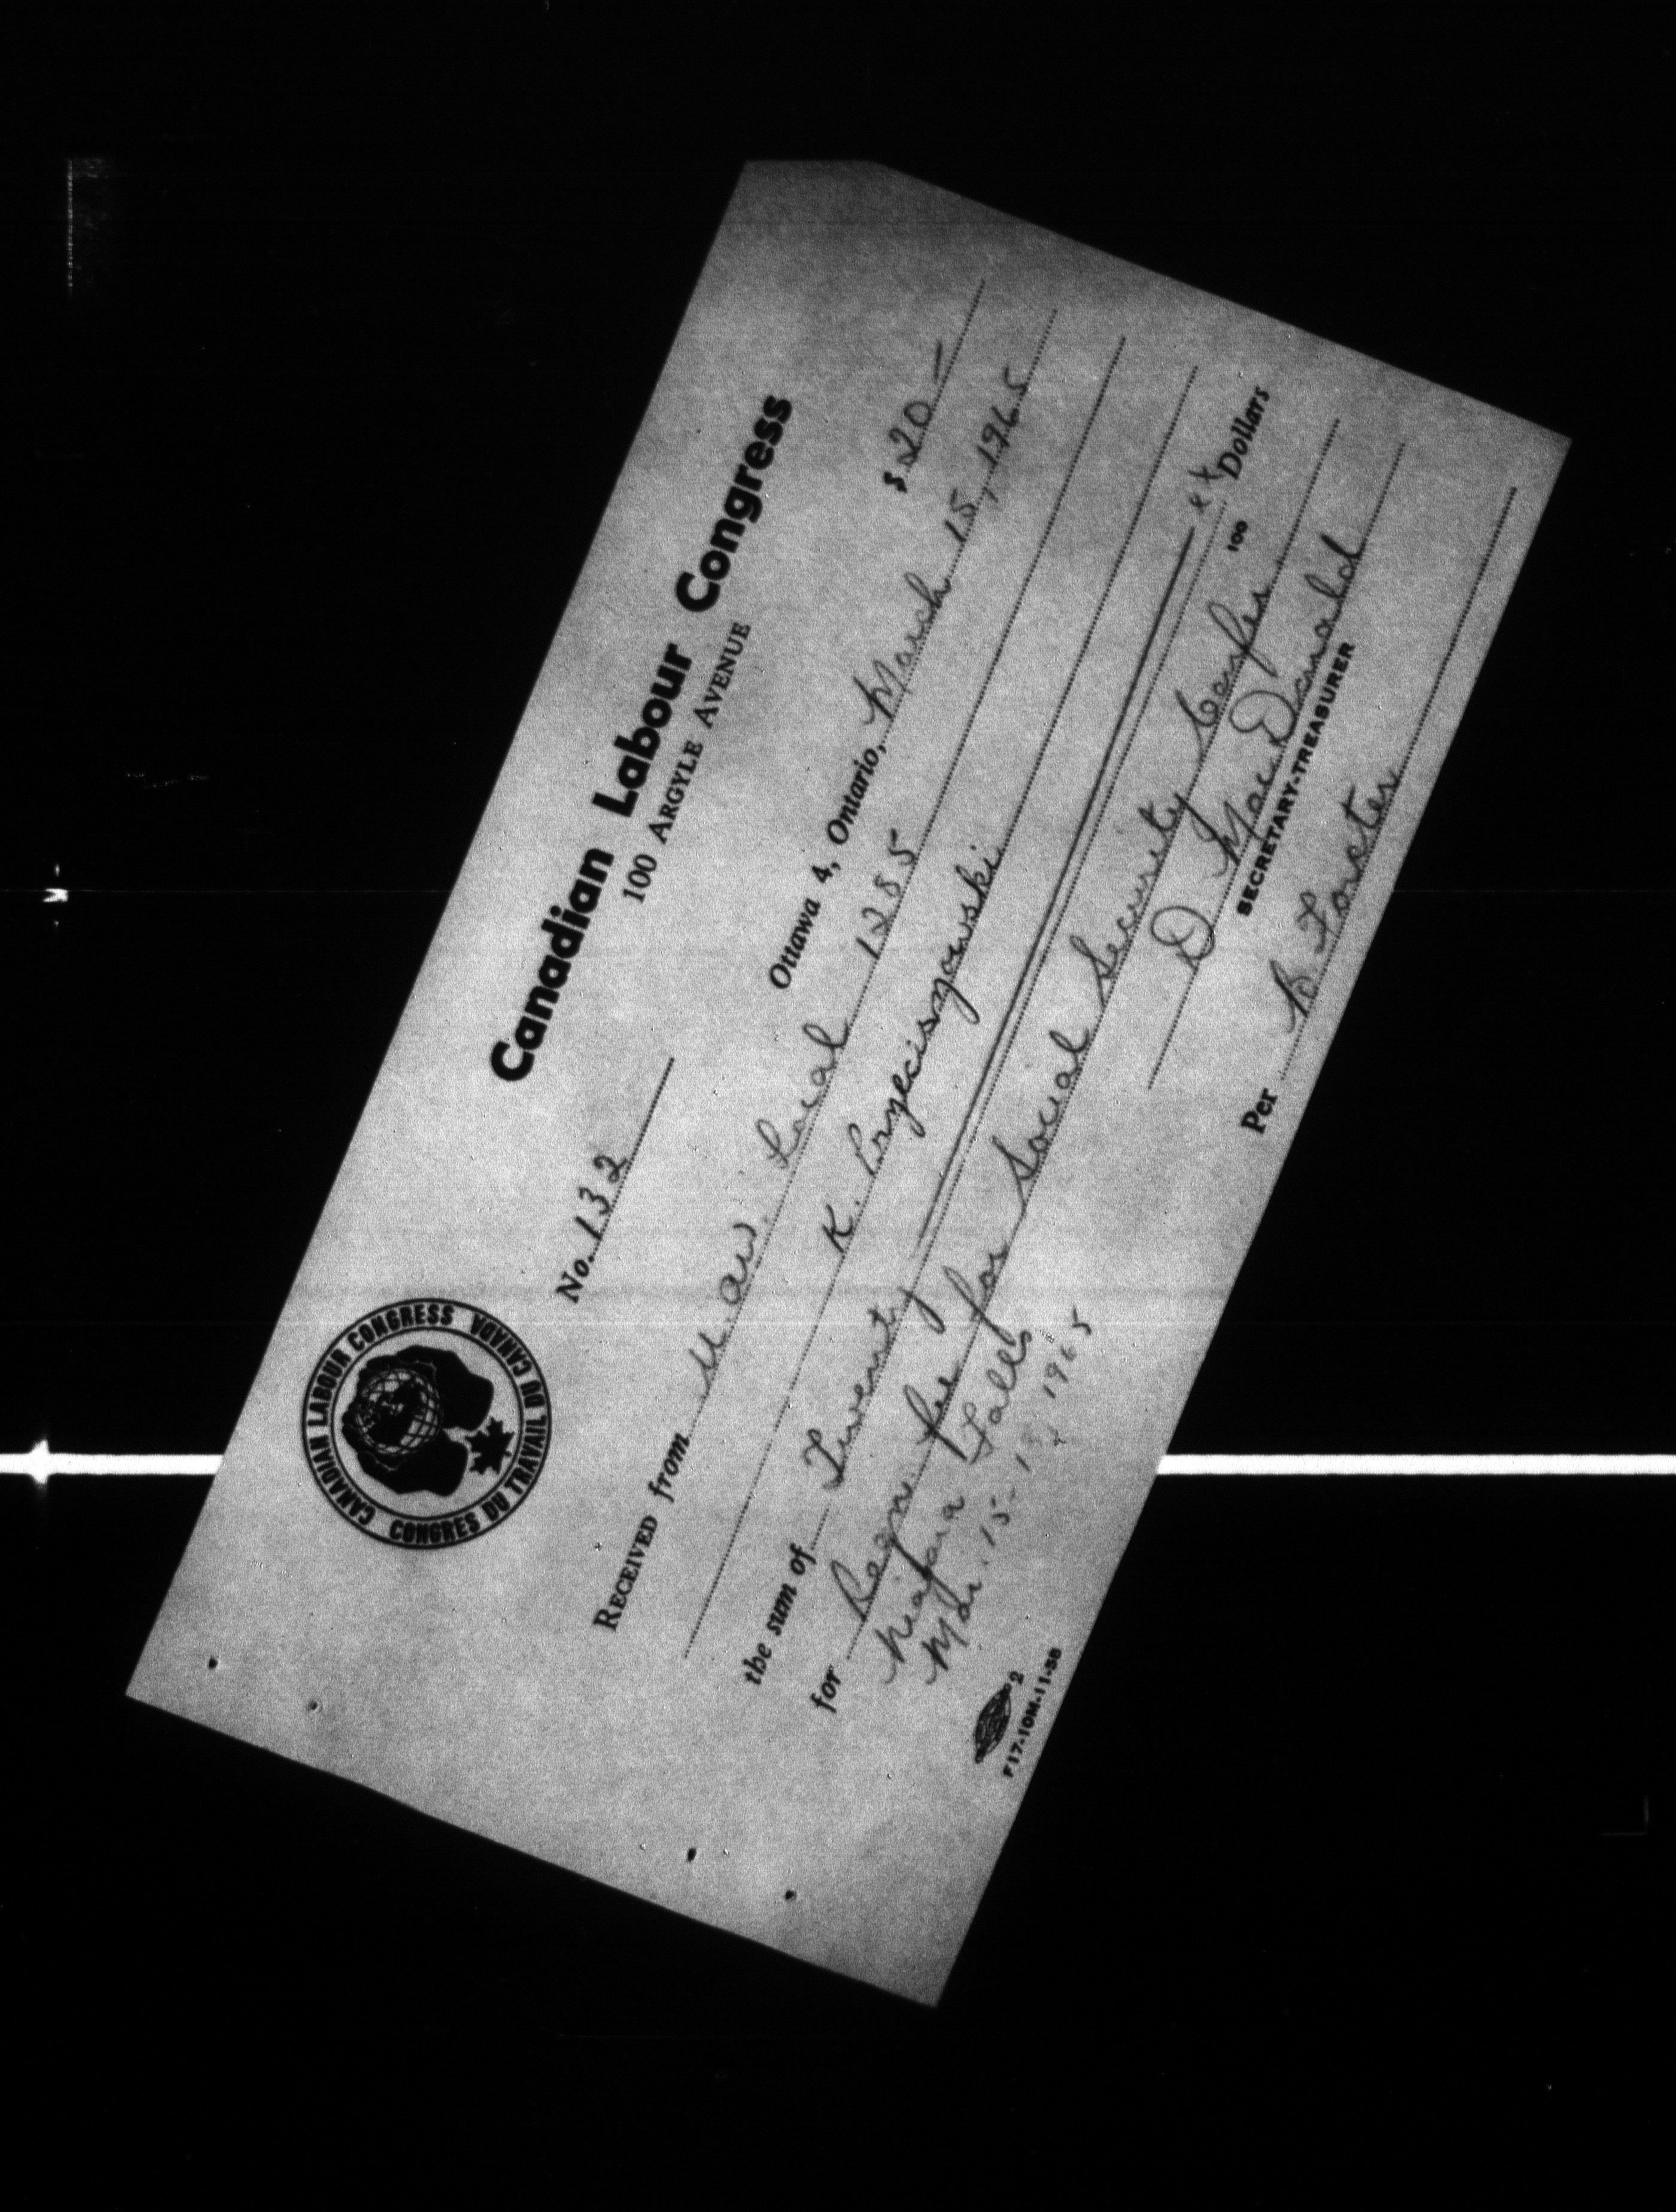 Canadian Labour Congress
100 ARGYLE AVENUE
CANADIAN LABOUR CONGRESS
CONGRES DU TRAVAIL DU CANADA
No. 132
$ 20 —
Ottawa 4, Ontario, March 15, 1965
RECEIVED from U.A.W. Local 1285
K.
the sum of Twenty xx/100 Dollars
for Regn fee for Social Security Confer.
Niagara Falls
Mar. 15- 1965
D MacDonald
SECRETARY-TREASURER
Per B Forster
2
F17-10M-11-58